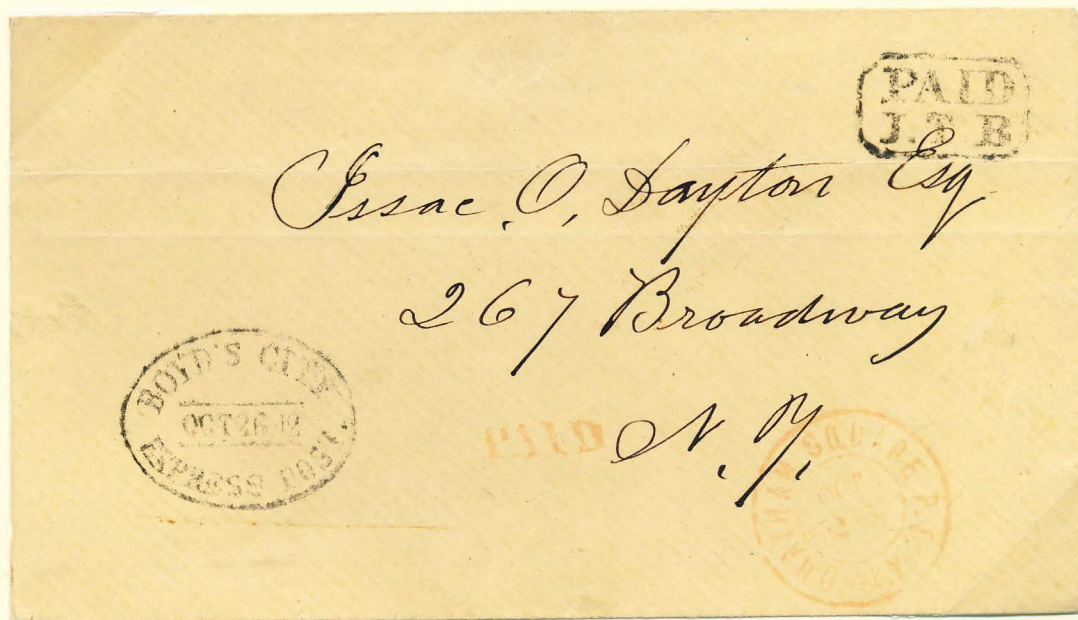 PAID
J.T.B.
Issac. O, Dayton Esq
267 Broadway
N. Y.
BOYD'S CITY
OCT 26 12
EXPRESS POST.
PAID
CHATHAM SQUARE P.O.
OCT